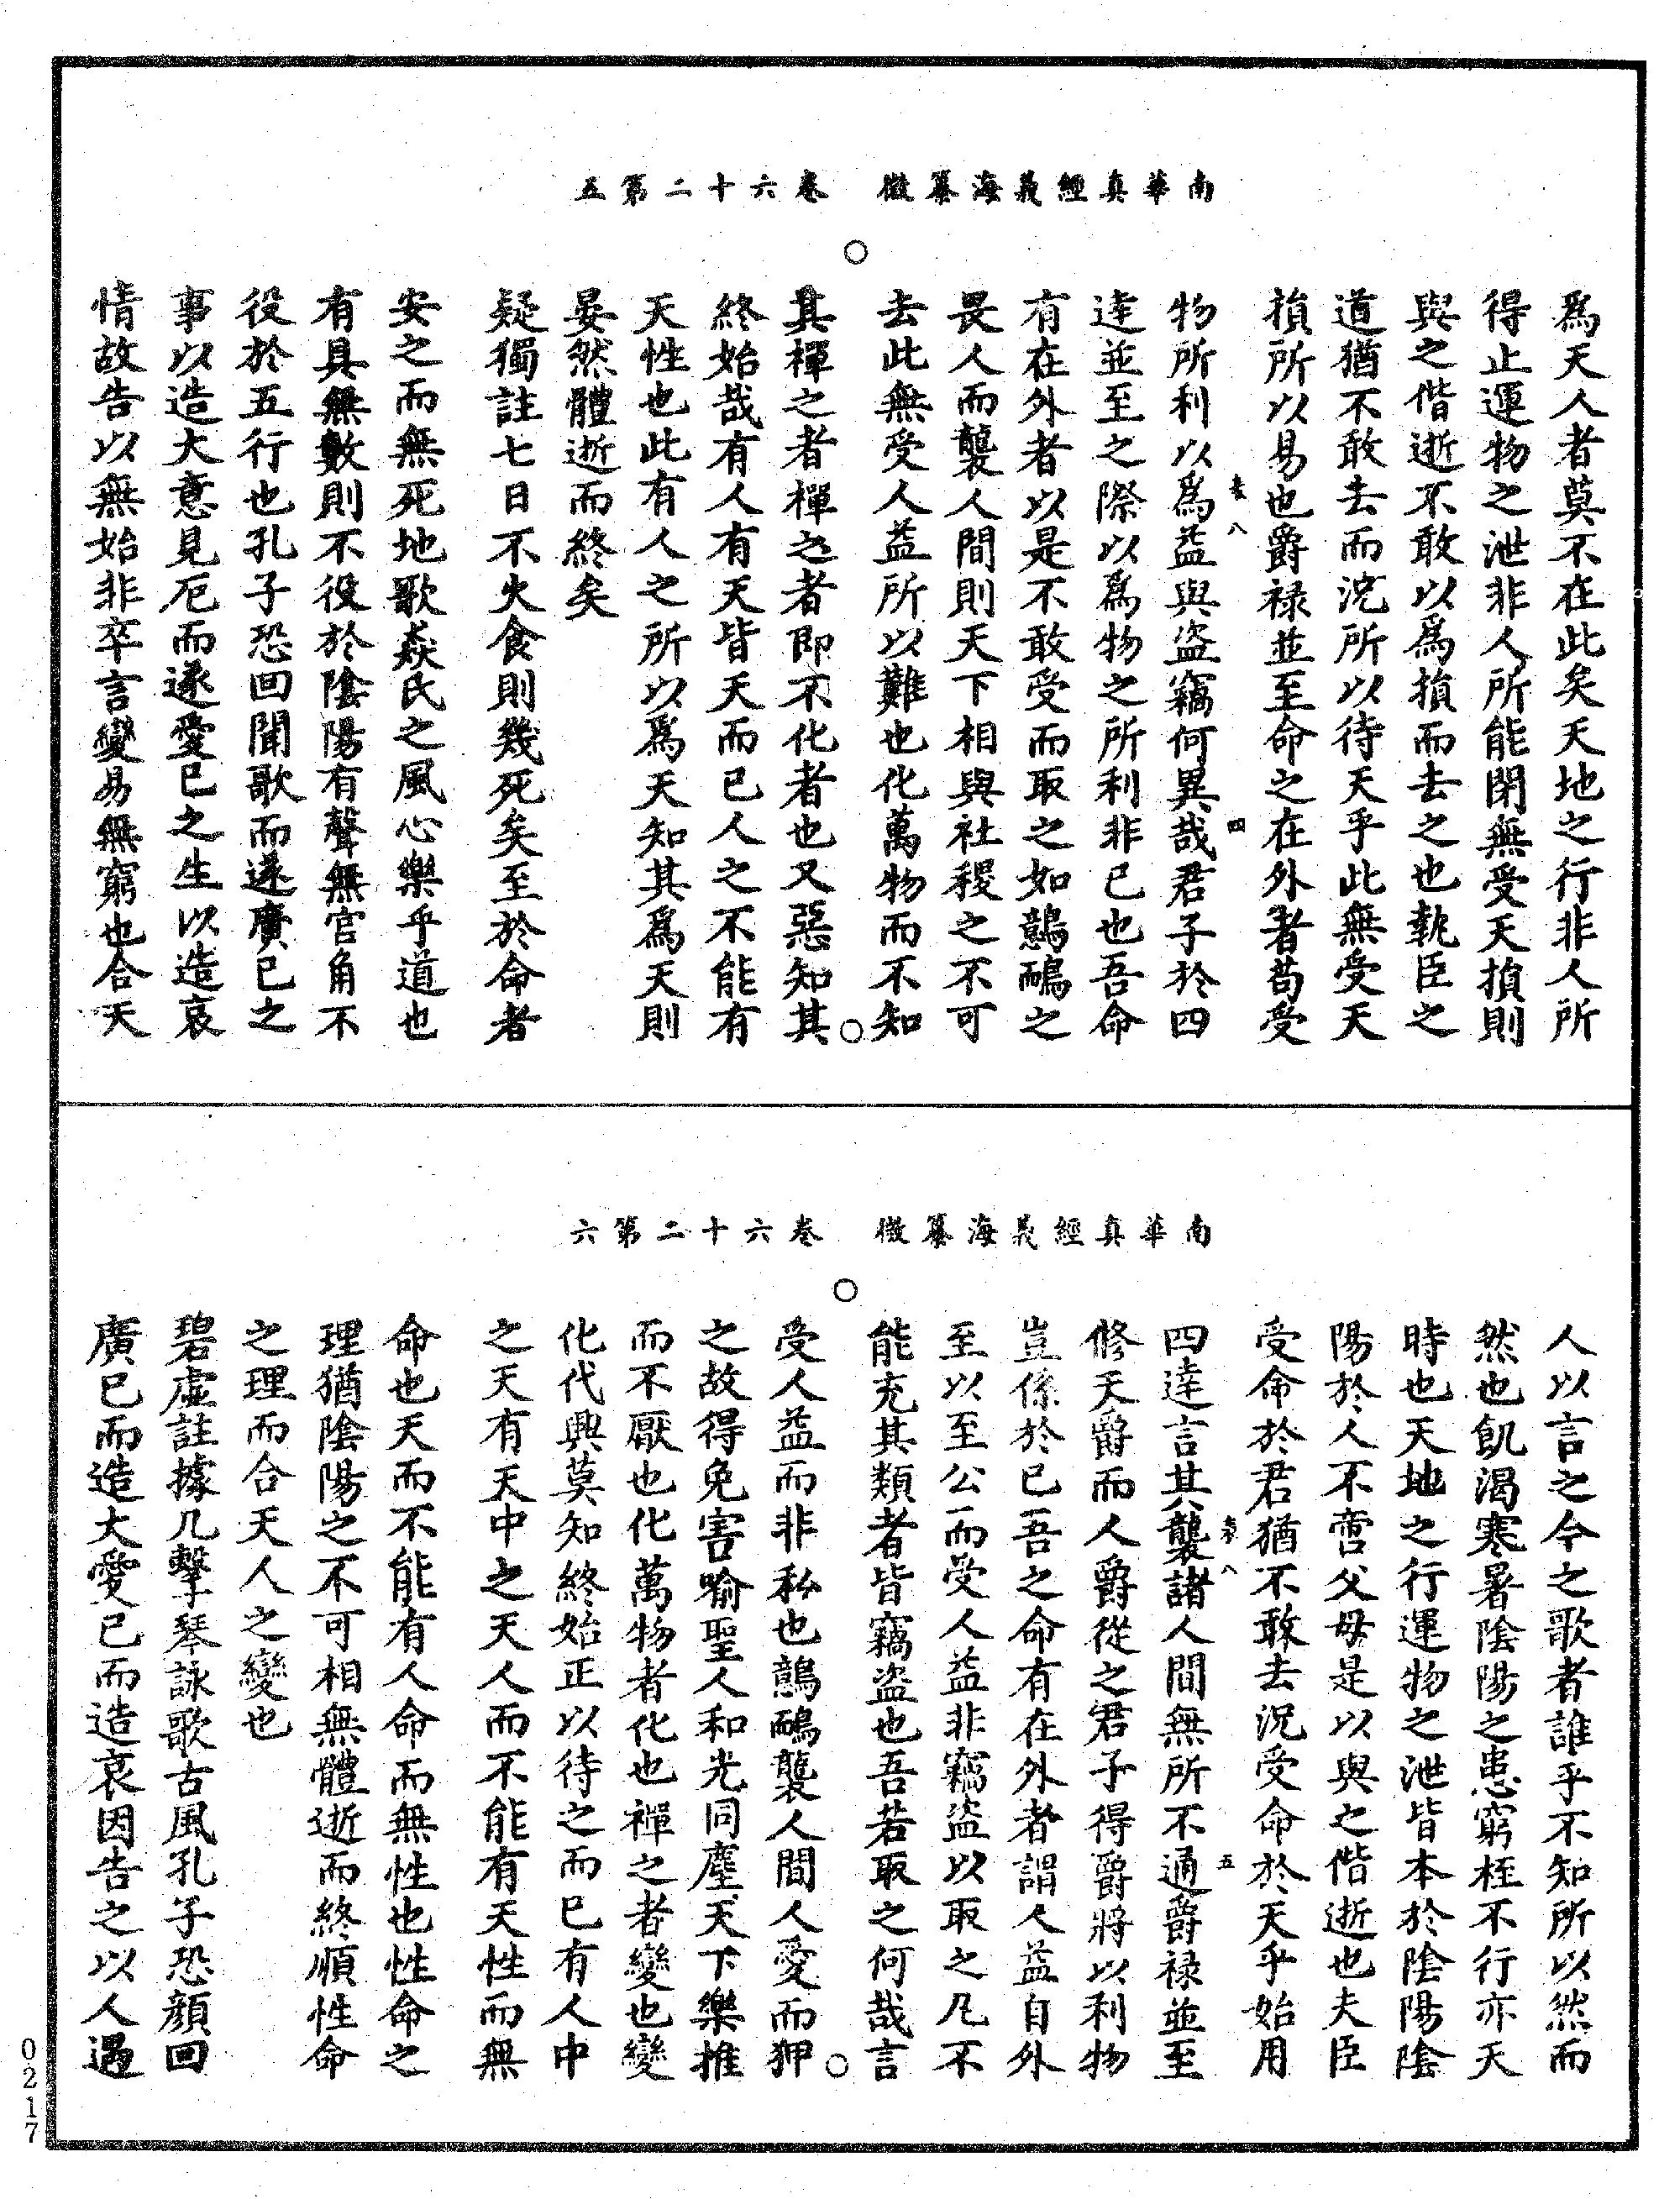 南華真經義海纂微　卷六十二第五
爲天人者莫不在此矣天地之行非人所
得止運物之泄非人所能閉無受天損則
與之偕逝不敢以爲損而去之也執臣之
道猶不敢去而況所以待天乎此無受天
損所以易也爵祿並至命之在外者苟受
物所利以爲益與盜竊何異哉君子於四
達並至之際以爲物之所利非己也吾命
有在外者以是不敢受而取之如鷾鴯之
畏人而襲人間則天下相與社稷之不可
去此無受人益所以難也化萬物而不知
其禪之者禪之者即不化者也又惡知其
終始哉有人有天皆天而已人之不能有
天性也此有人之所以爲天知其爲天則
晏然體逝而終矣
疑獨註七日不火食則幾死矣至於命者
安之而無死地歌猋氏之風心樂乎道也
有具無數則不役於陰陽有聲無宮角不
役於五行也孔子恐回聞歌而遂廣己之
事以造大意見厄而遂愛己之生以造哀
情故告以無始非卒言變易無窮也合天
南華真經義海纂微　卷六十二第六
人以言之今之歌者誰乎不知所以然而
然也飢渴寒暑陰陽之患窮桎不行亦天
時也天地之行運物之泄皆本於陰陽陰
陽於人不啻父母是以與之偕逝也夫臣
受命於君猶不敢去況受命於天乎始用
四達言其襲諸人間無所不通爵祿並至
修天爵而人爵從之君子得爵將以利物
豈係於己吾之命有在外者謂人益自外
至以至公而受人益非竊盜以取之凡不
能充其類者皆竊盜也吾若取之何哉言
受人益而非私也鷾鴯襲人間人愛而狎
之故得免害喻聖人和光同塵天下樂推
而不厭也化萬物者化也禪之者變也變
化代興莫知終始正以待之而已有人中
之天有天中之天人而不能有天性而無
命也天而不能有人命而無性也性命之
理猶陰陽之不可相無體逝而終順性命
之理而合天人之變也
碧虛註據几擊琴詠歌古風孔子恐顏回
廣己而造大愛己而造哀因告之以人遇
孝八
四
孝八
五
0217